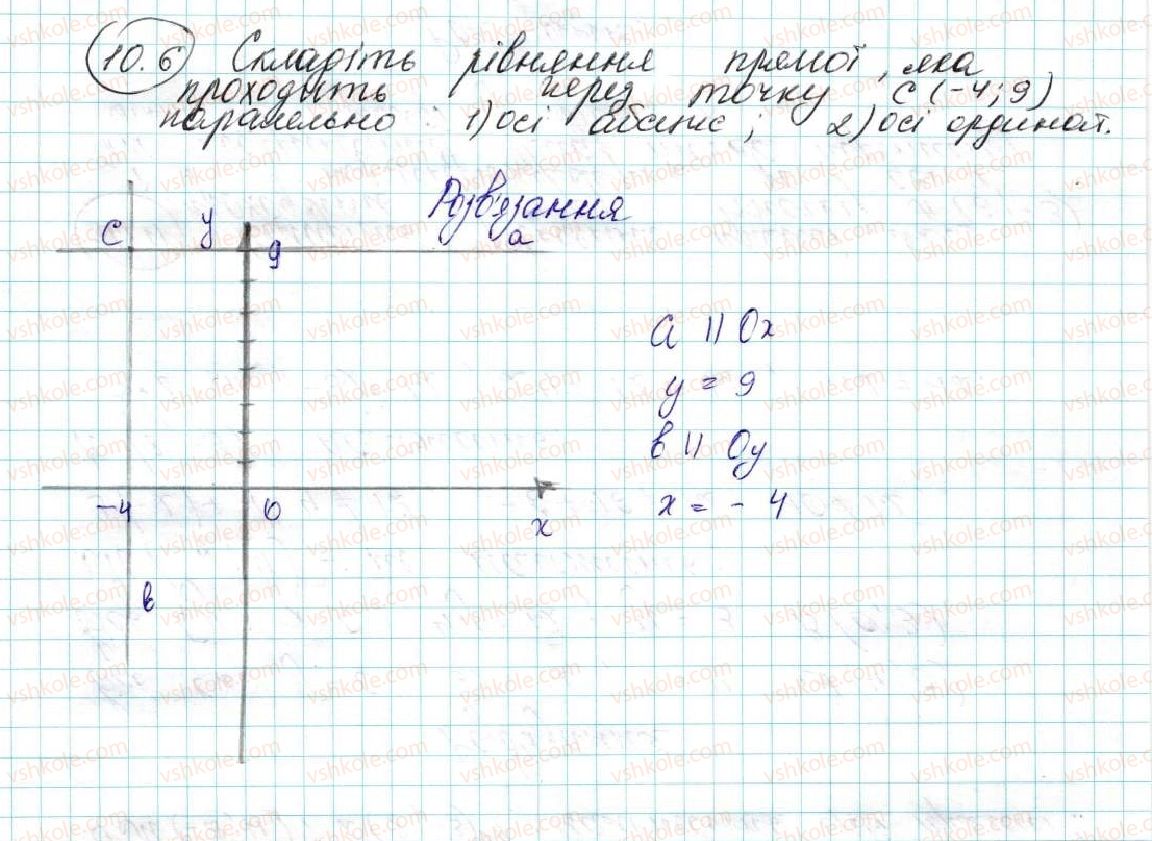 10.6 Складіть рівняння прямої, яка
проходить через точку С (-4; 9)
паралельно: 1) осі абсцис; 2) осі ординат.
Розв'язання
С y 9 a
a || Ox
y = 9
в || Oy
x = - 4
-4 0 x
в
vshkole.com